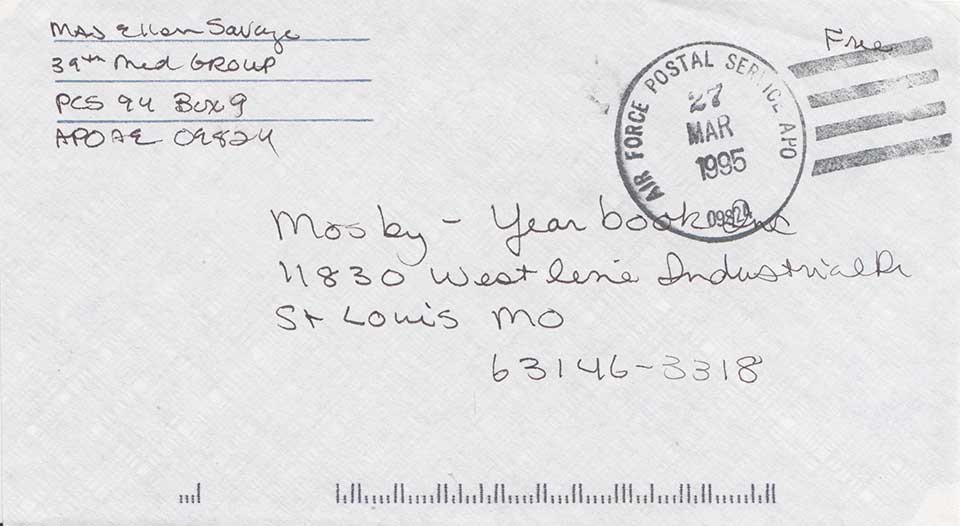 MAJ Ellen Savage
39th Med GROUP
PCS 94 Box 9
APO AE 09824
Free
AIR FORCE POSTAL SERVICE APO
27
MAR
1995
09824
Mosby - Year book Inc
11830 Westline Industrial Dr
St Louis MO
63146-3318